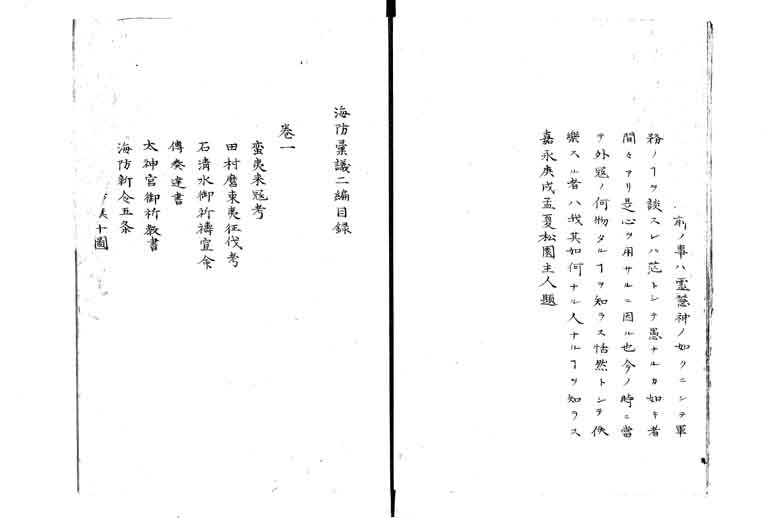 前ノ事ハ霊慧神ノ如クニシテ軍
務ノヿヲ談スレハ茫トシテ愚ナルカ如キ者
間々アリ是心ヲ用サルニ因ル也今ノ時ニ當
テ外寇ノ何物タルヿヲ知ラス恬然トシテ佚
樂スル者ハ我其如何ナル人ナルヿヲ知ラス
嘉永庚戌孟夏松園主人題
海防彙議二編目録
巻一
蛮夷来寇考
田村麿東夷征伐考
石清水御祈禱宣命
傳奏達書
太神宮御祈教書
海防新令五条
十圖